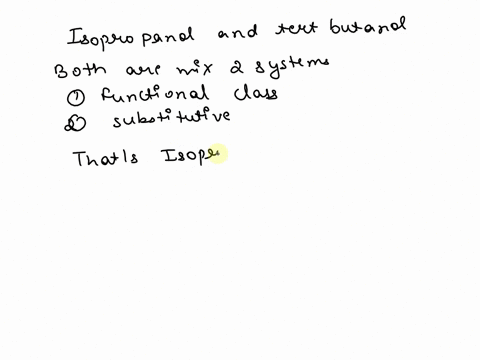 Isopropanol and tert butanol
Both are mix 2 systems
① functional class
② substitutive
That's Isopr